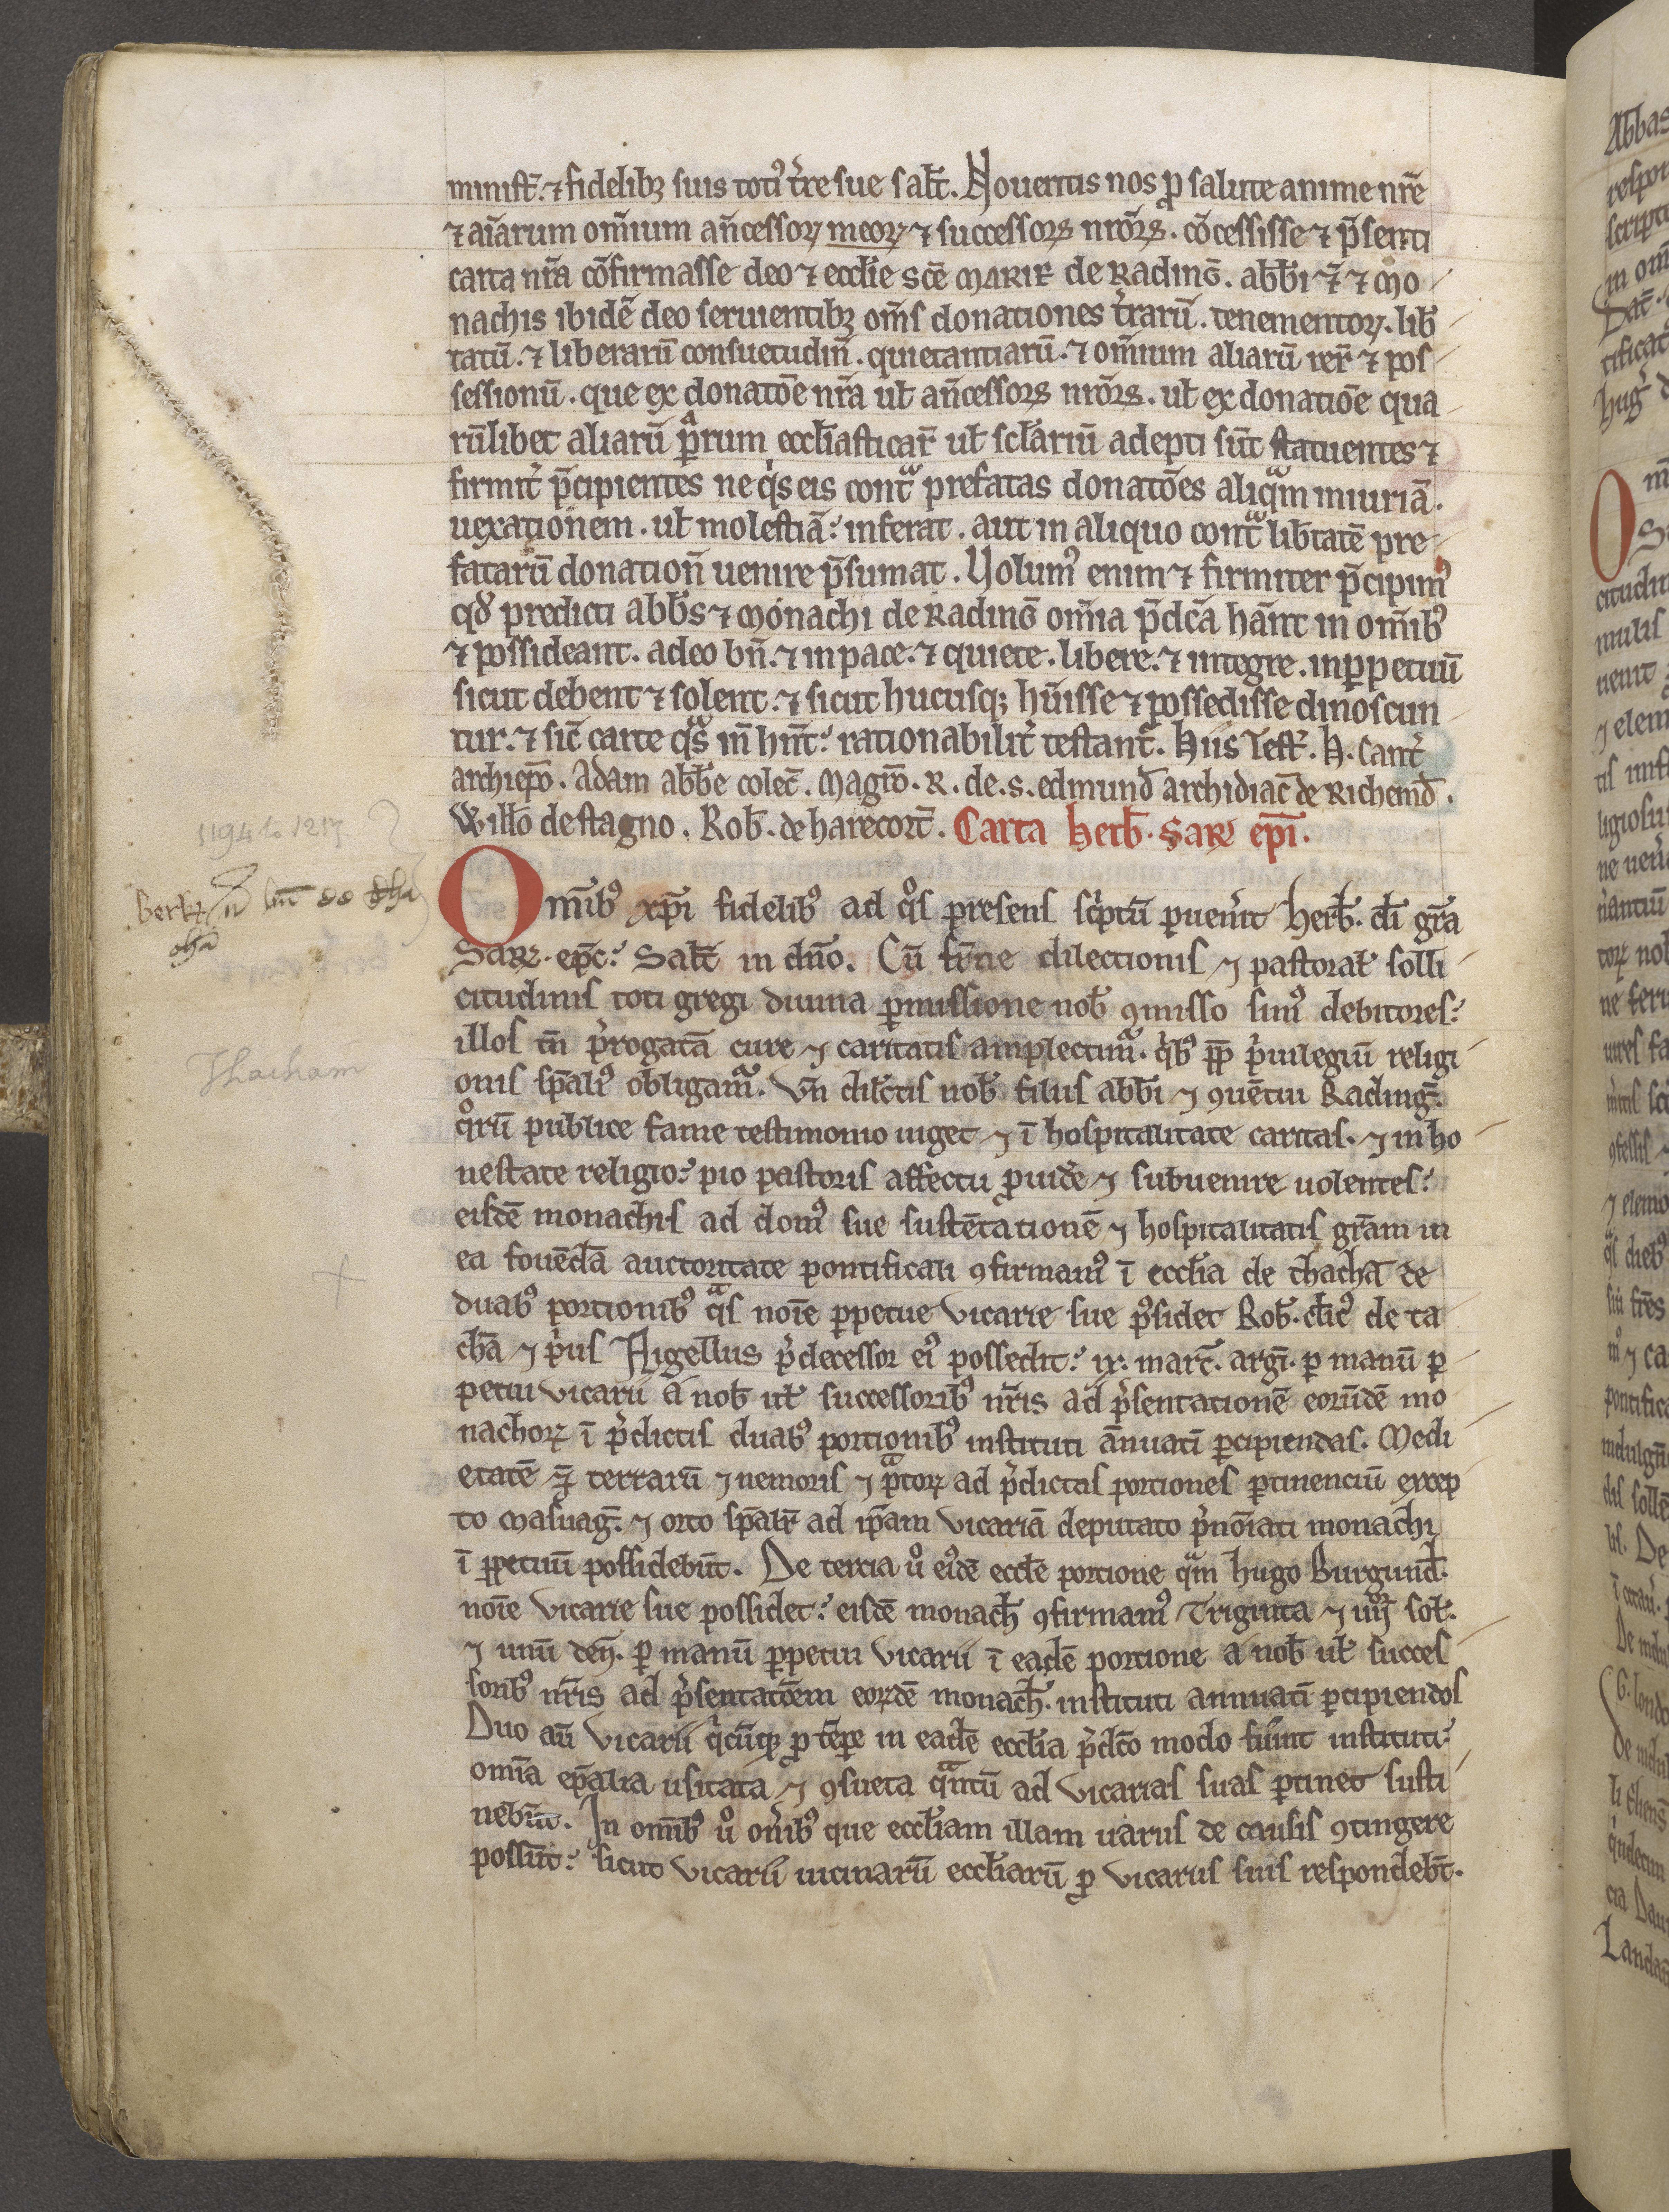 minist̄. ⁊ fidelibꝫ suis totiꝰ t̄re sue sal̄t. Nouertis nos ꝓ salute anime nr̄e
⁊ aīarum om̄ium an̄cessoꝝ meoꝝ ⁊ successoꝝ nr̄oꝝ. cōcessisse ⁊ p̄senti
carta nr̄a cōfirmasse deo ⁊ eccl̄ie sc̄e MARIE de Radinḡ. abb̄i ⁊ mo
nachis ibidē deo seruientibꝫ om̄s donationes t̄rarū. tenementoꝝ. lib̄
tatū. ⁊ liberarū consuetudin̄. quietantiarū. ⁊ om̄ium aliarū rer̄ ⁊ pos
sessionū. que ex donatōe nr̄a ul̄ an̄cessoꝝ nr̄oꝝ. ul̄ ex donatiōe qua
rūlibet aliarū ꝑsonarum eccl̄iasticar̄ ul̄ scl̄ariū adepti sūt statuentes ⁊
firmit̄ p̄cipientes ne qⁱs eis contᵃ prefatas donatōes aliqᵃm iniuriā.
uexationem. ul̄ molestiā: inferat. aut in aliquo contᵃ lib̄tatē pre
fatarū donation̄ uenire p̄sumat. Volumꝰ enim ⁊ firmiter p̄cipimꝰ
qd̄ predicti abb̄s ⁊ monachi de Radinḡ om̄ia p̄dc̄a hān̄t in om̄ibꝰ
⁊ possideant. adeo bn̄. ⁊ in pace. ⁊ quiete. libere. ⁊ integre. inꝑpetuū
sicut debent ⁊ solent. ⁊ sicut hucusqꝫ hūisse ⁊ possedisse dinoscun
tur. ⁊ sic̄ carte qᵃs in̄ hn̄t: rationabilit̄ testant̄. Hiis Test̄. H. Cant̄
archiep̄o. Adam abb̄e colec̄. Magr̄o. R. de. s. edmund̄ archidiac̄ de Richemd̄.
Will̄o de stagno. Rob̄. de harecort̄. Carta Herb̄. Saꝝ ep̄i.
1194 to 1217.
Om̄ibꝰ xp̄i fidelibꝰ ad qᵒs presens scⁱptū ꝑuen̄it Herb̄. di̅ gr̄a
Saꝝ. ep̄c: Sal̄t in dn̄o. Cū fr̄ne dilectionis ⁊ pastoral̄ solli
citudinis toti gregi diuina ꝑmissione nob̄ ꝯmisso simꝰ debitores:
Thacham
illos tn̄ p̄rogatā cure ⁊ caritatis amplectimᵃ. qⁱbꝰ ꝓp̄ p̄uilegiū religi
onis sp̄aliꝰ obligamᵃ. Vn̄ dil̄ctis nob̄ filiis abb̄i ⁊ ꝯuētui Radinḡ:
qᵒrū publice fame testimonio uiget ⁊ ī hospitalitate caritas. ⁊ in ho
nestate religio: pio pastoris affectu ꝓuid̄e ⁊ subuenire uolentes:
eisdē monachis ad domꝰ sue sustētationē ⁊ hospitalitatis gr̄am in
ea fouēdā auctoritate pontificali ꝯfirmamꝰ ī eccl̄ia de thachā de
duabꝰ portionibꝰ qᵃs noīe ꝑpetue vicarie sue p̄sidet Rob̄. cl̄icꝰ de ta
chā ⁊ pⁱus Nigellus p̄decessor eiꝰ possedit: ix. marc̄. arḡ. ꝑ manū ꝑ
petui vicarii a nob̄ ul̄ successoribꝰ nr̄is ad p̄sentationē eorūdē mo
nachoꝝ ī p̄dictis duabꝰ portionibꝰ instituti ānuatī ꝑcipiendas. Medi
etatē ⁊ terrarū ⁊ nemoris ⁊ pᵃtoꝝ ad p̄dictas portiones ꝑtinenciū excep
to masuaḡ. ⁊ orto sp̄alit̄ ad ip̄am vicariā deputato p̄noīati monachi
ī ꝑpetuū possidebūt. De tercia uᵒ eiꝰdē eccl̄e portione qᵃm hugo Burgund̄.
noīe vicarie sue possidet: eisdē monach̄ ꝯfirmamꝰ Triginta ⁊ iiij sol̄.
⁊ unū deñ. ꝑ manū ꝑpetui vicarii ī eadē portione a nob̄ ul̄ succes
soribꝰ nr̄is ad p̄sentatōem eoꝝdē monach̄. instituti annuatī ꝑcipiendos
Duo au̅ vicarii qⁱcūqꝫ ꝓ tēpe in eadē eccl̄ia p̄dc̄o modo fūint instituti:
omīa ep̄alia usitata ⁊ ꝯsueta qᵃntū ad vicarias suas ꝑtinet susti
nebūt. In om̄ibꝰ uᵒ on̄ibꝰ que eccl̄iam illam uariis de causis ꝯtingere
possūt: sicut vicarii uicinarū eccl̄iarū ꝓ vicariis suis respondebt̄.